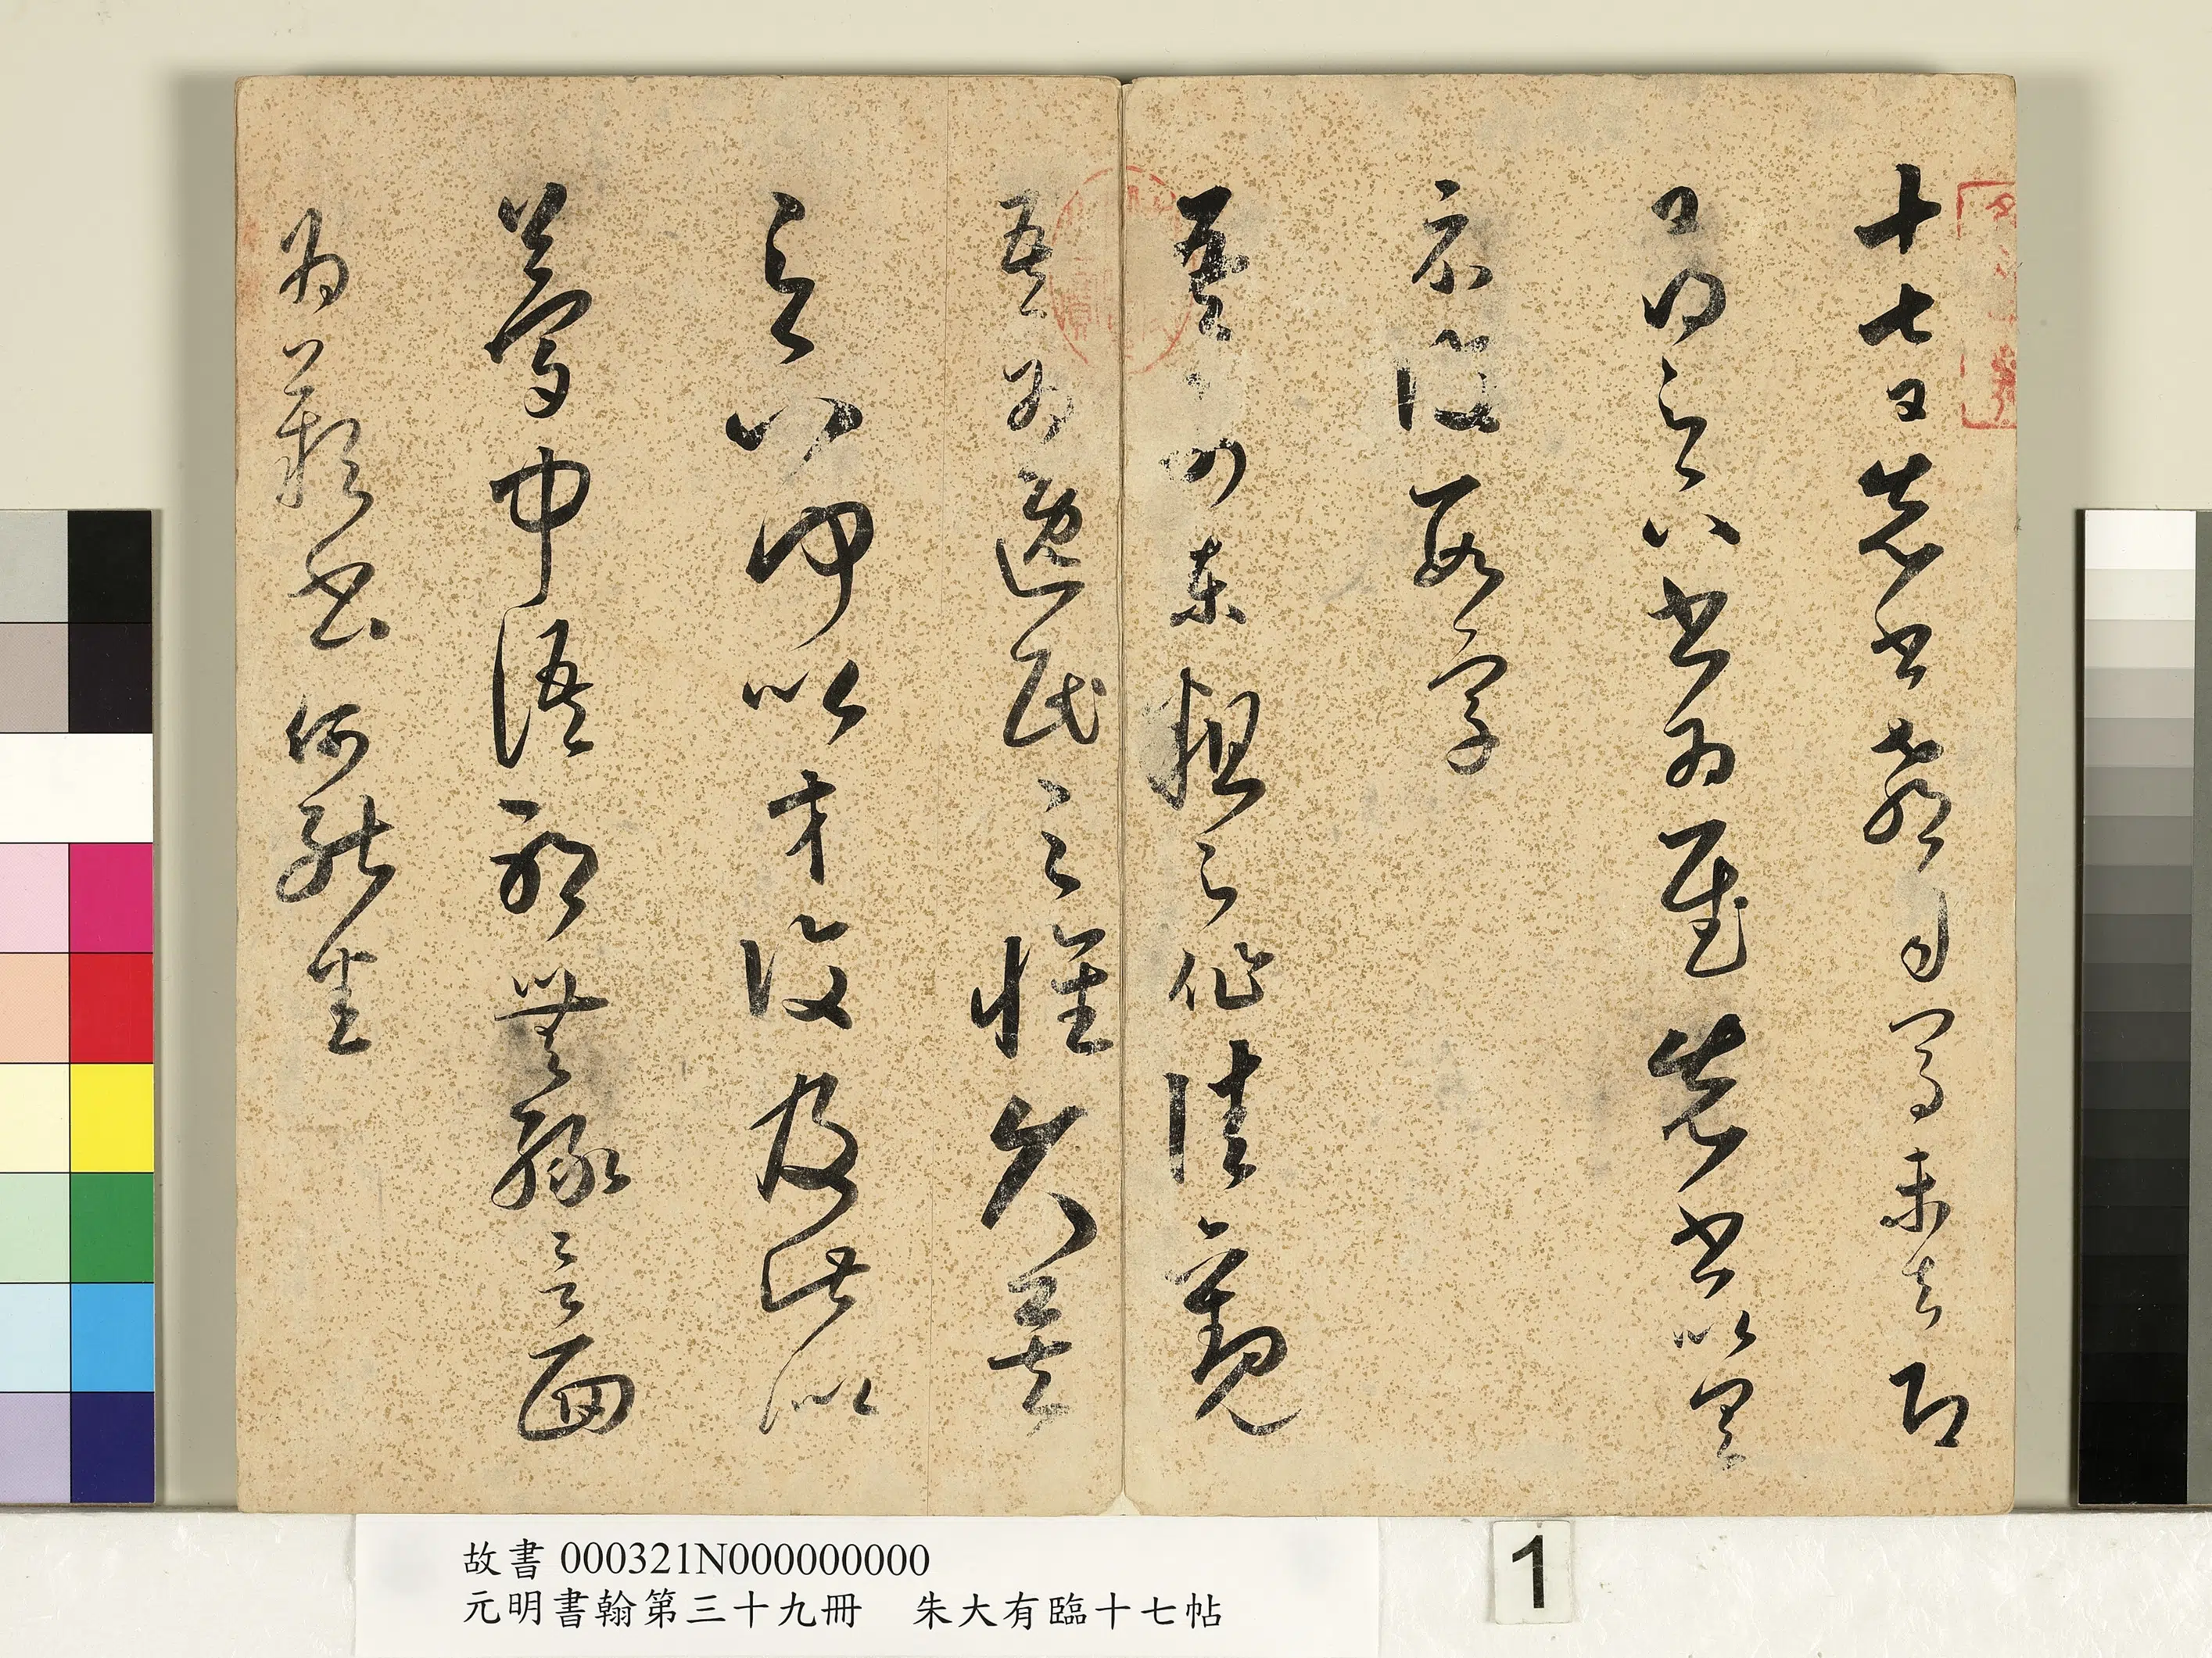 十七日先書郗司馬未去即
日得足下書為慰先書以具
示復數字
吾前東粗足作佳觀
吾為逸民之懷久矣
足下何以等復及此似
夢中語耶無緣言面
為歎書何能悉
故書 000321N000000000
元明書翰第三十九冊 朱大有臨十七帖
1